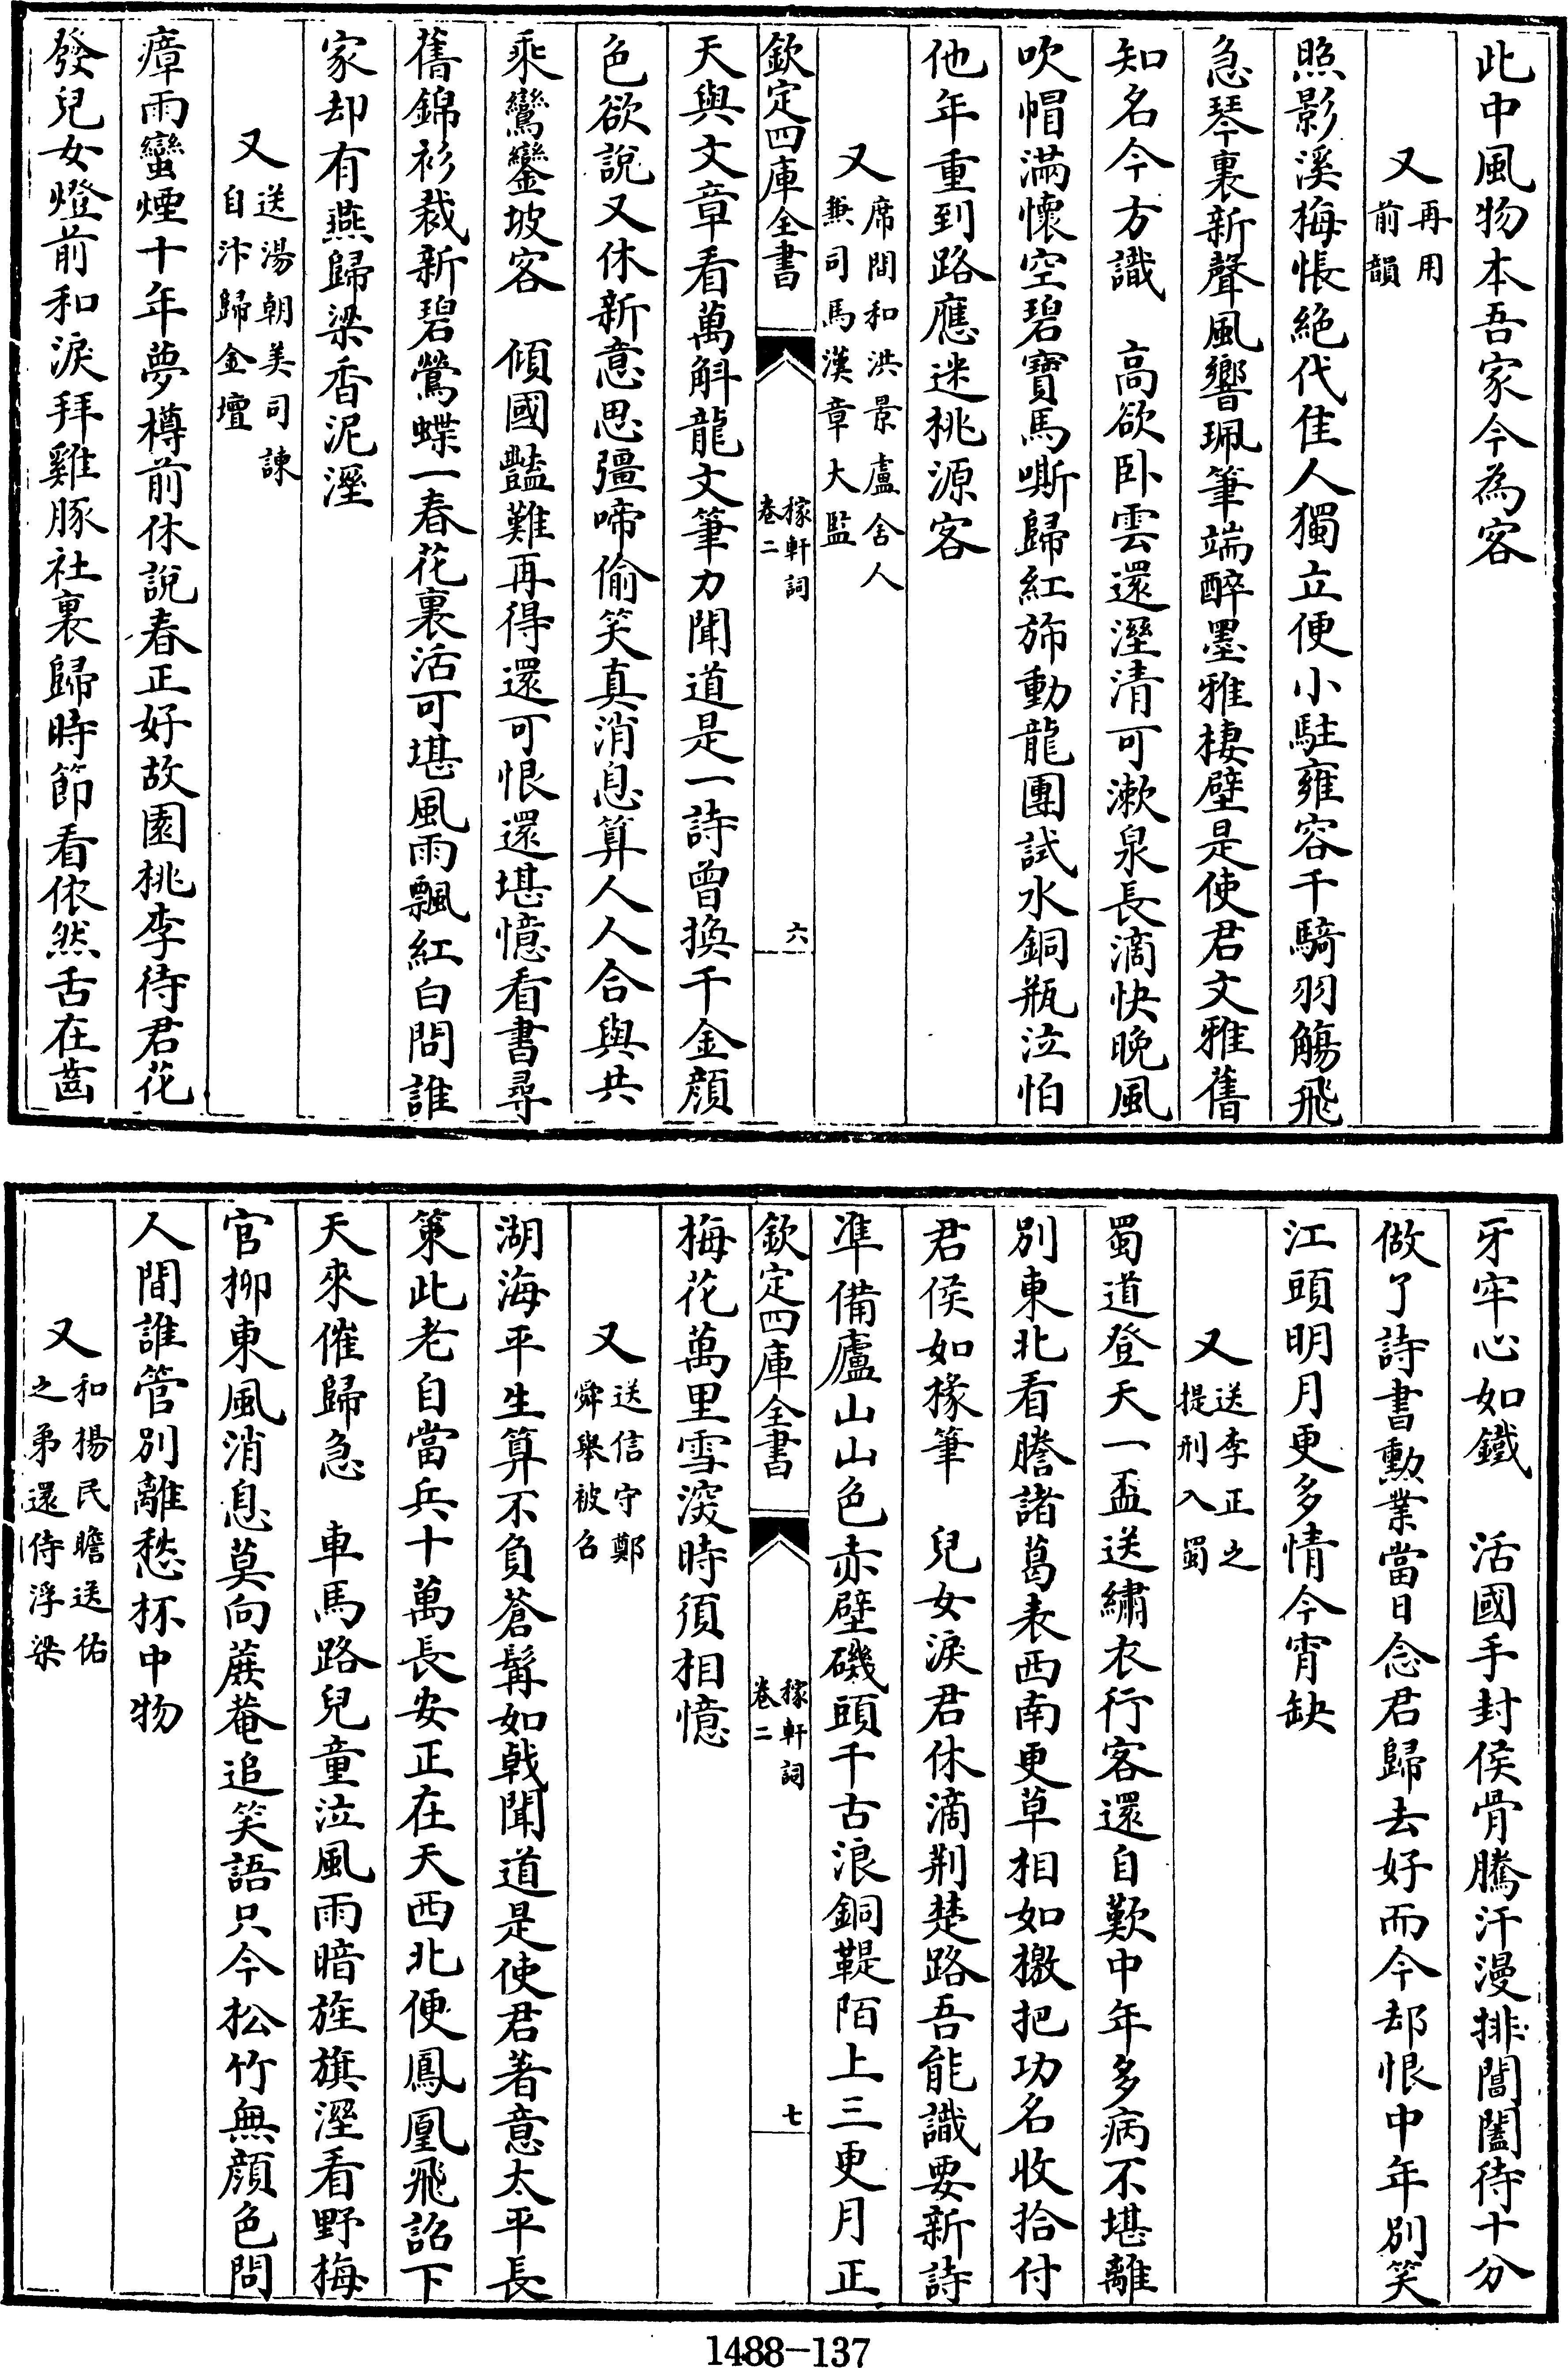 此中風物本吾家今為客
又再用前韻
照影溪梅悵絶代佳人獨立便小駐雍容千騎羽觴飛
急琴裏新聲風響珮筆端醉墨雅棲壁是使君文雅舊
知名今方識　高欲卧雲還溼清可漱泉長滴快晚風
吹帽滿懷空碧寶馬嘶歸紅斾動龍團試水銅瓶泣怕
他年重到路應迷桃源客
又席間和洪景盧舍人兼司馬漢章大監
欽定四庫全書　稼軒詞卷二　六
天與文章看萬斛龍文筆力聞道是一詩曾換千金顔
色欲說又休新意思彊啼偷笑真消息算人人合與共
乘鸞鑾坡客　傾國豔難再得還可恨還堪憶看書尋
舊錦衫裁新碧鶯蝶一春花裏活可堪風雨飄紅白問誰
家却有燕歸梁香泥溼
又送湯朝美司諫自汴歸金壇
瘴雨蠻煙十年夢樽前休說春正好故園桃李待君花
發兒女燈前和淚拜雞豚社裏歸時節看依然舌在齒
牙牢心如鐵　活國手封侯骨騰汗漫排閶闔待十分
做了詩書勳業當日念君歸去好而今却恨中年别笑
江頭明月更多情今宵缺
又送李正之提刑入蜀
蜀道登天一盃送繡衣行客還自歎中年多病不堪離
别東北看謄諸葛表西南更草相如檄把功名收拾付
君侯如椽筆　兒女淚君休滴荆楚路吾能識要新詩
凖備廬山山色赤壁磯頭千古浪銅鞮陌上三更月正
欽定四庫全書　稼軒詞卷二　七
梅花萬里雪深時須相憶
又送信守鄭舜舉被召
湖海平生算不負蒼髯如戟聞道是使君著意太平長
策此老自當兵十萬長安正在天西北便鳳凰飛詔下
天來催歸急　車馬路兒童泣風雨暗旌旗溼看野梅
官柳東風消息莫向蔗菴追笑語只今松竹無顔色問
人間誰管别離愁杯中物
又和楊民瞻送佑之弟還侍浮梁
1488-137